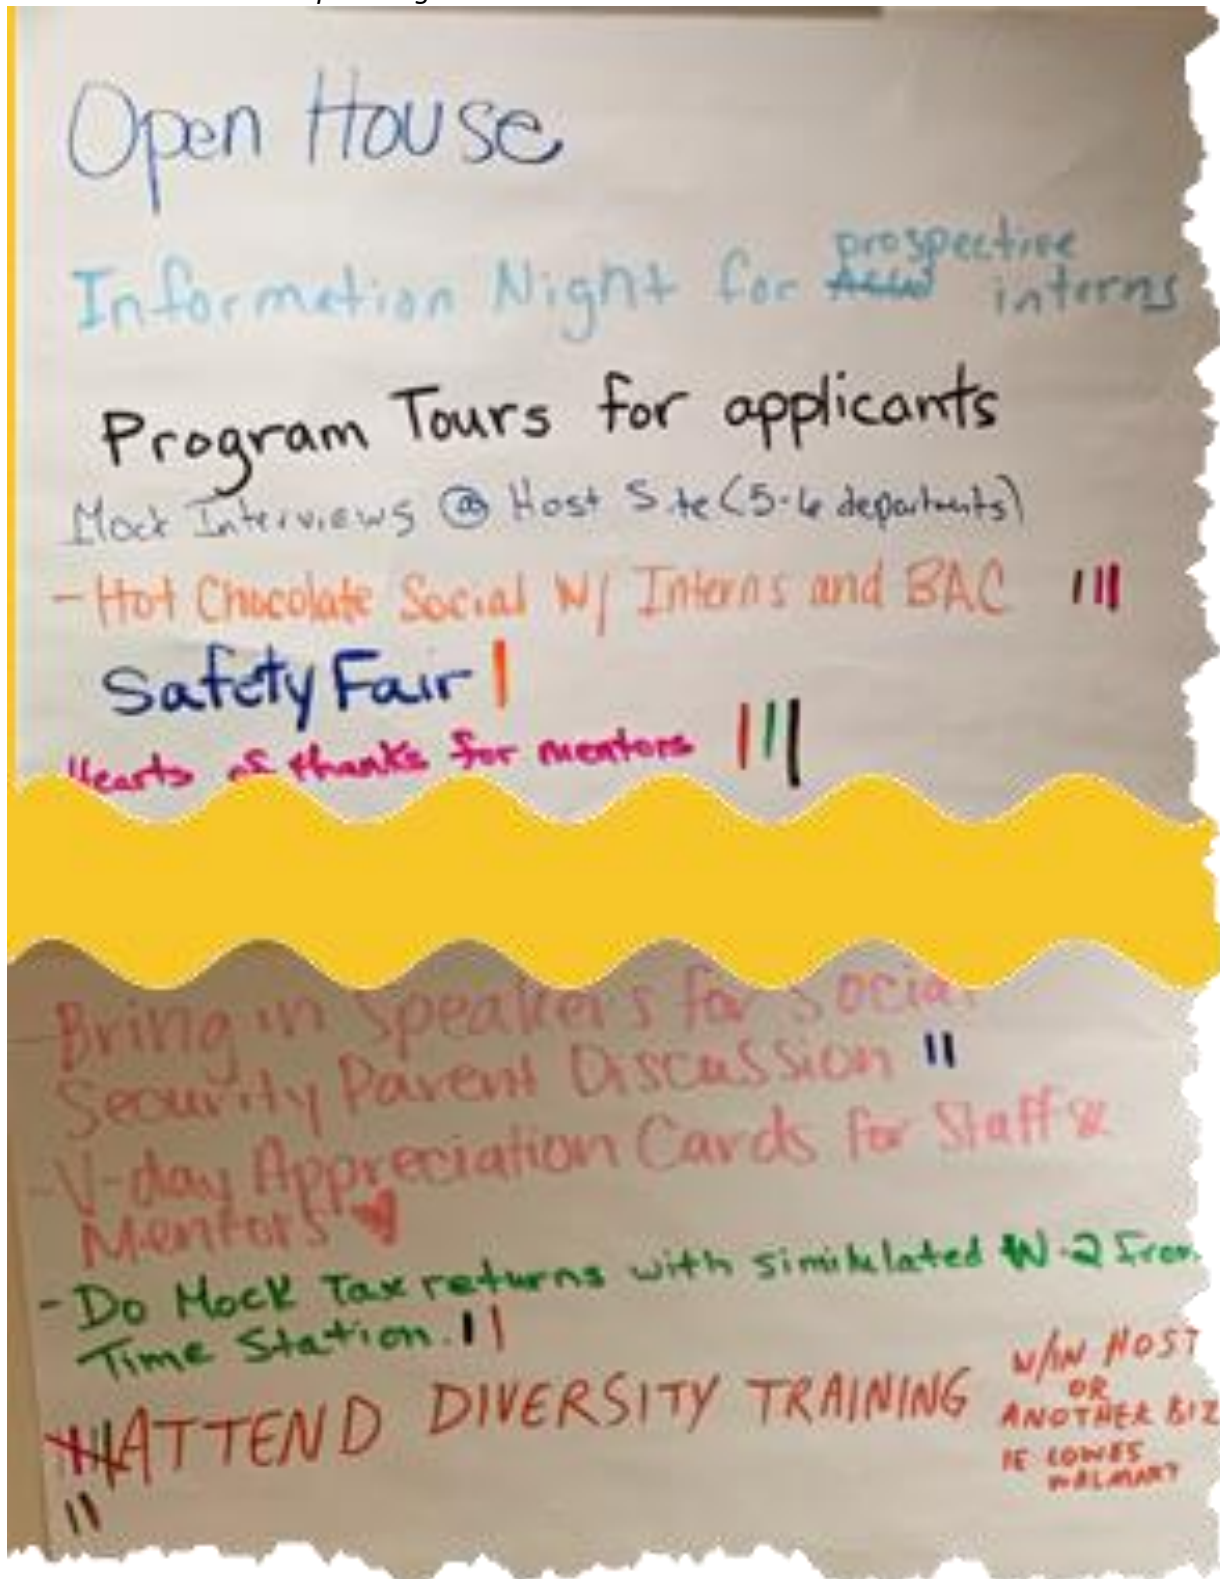 Open House
prospective
Information Night for interns
Program Tours for applicants
Mock Interviews @ Host Site (5-6 departments)
- Hot Chocolate Social w/ Interns and BAC
Safety Fair
Hearts of thanks for mentors
- Bring in Speakers for Social
Security Parent Discussion
- V-day Appreciation Cards for Staff &
Mentors
- Do Mock Tax returns with simitulated W-2 From
Time Station.
ATTEND DIVERSITY TRAINING
W/IN HOST
OR
ANOTHER BIZ
IE LOWES
WALMART